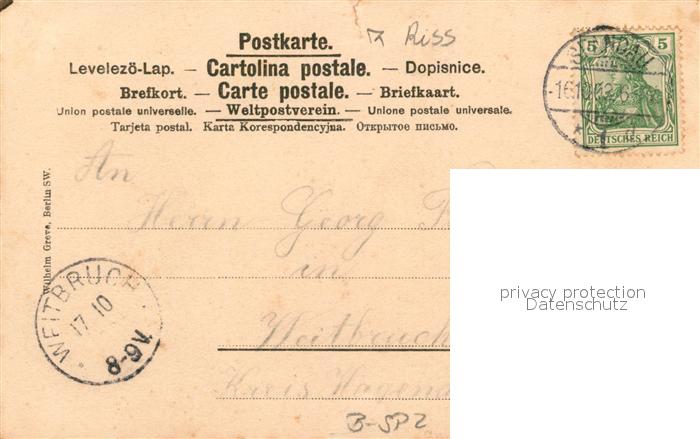 Postkarte. Riss
Levelezö-Lap. — Cartolina postale. — Dopisnice.
Brefkort. — Carte postale. — Briefkaart.
Union postale universelle. — Weltpostverein. — Unione postale universale.
Tarjeta postal. Karta Korespondencyjna. Открытое письмо.
5 5
DEUTSCHES REICH
An
Herrn Georg
in
Weitbruch
Kreis Hagen
Wilhelm Greve, Berlin SW.
WEITBRUCH
17 10
8-9V.
privacy protection
Datenschutz
B-SP2